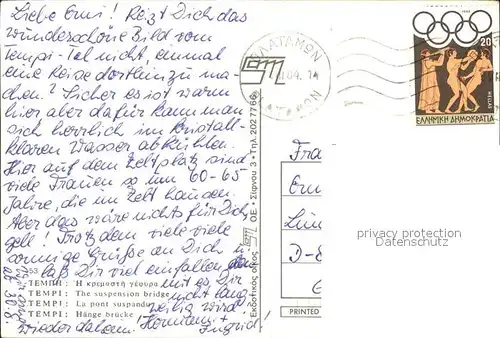 Liebe Erni! Reizt Dich das
wunderschöne Bild vom
Tempi-Tal nicht, einmal
eine Reise dorthin zu ma-
chen? Sicher es ist warm
hier aber dafür kann man
sich herrlich im kristall-
klaren Wasser abkühlen.
Hier auf dem Zeltplatz sind
viele Frauen so um 60-65
Jahre, die im Zelt hausen.
Aber das wäre nichts für Dich,
gell! Trotz dem viele viele
sonnige Grüße an Dich u.
laß Dir viel einfallen
mit es Dir
nicht lang
weilig wird!
wieder daheim! Hermann +
Ingrid!
ab 30.8.
53
ΤΕΜΠΗ: Ἡ κρεμαστή γέφυρα
TEMPI: The suspension bridge
TEMPI: La pont suspandu
TEMPI: Hänge brücke
Εκδοτικός οίκος ΟΕ • Σίφνου 3 • Τηλ. 2027766
PRINTED
ΠΛΑΤΑΜΩΝ
PLATAMON
20
HELLAS
ΕΛΛΗΝΙΚΗ ΔΗΜΟΚΡΑΤΙΑ
Frau
D-8
privacy protection
watermark